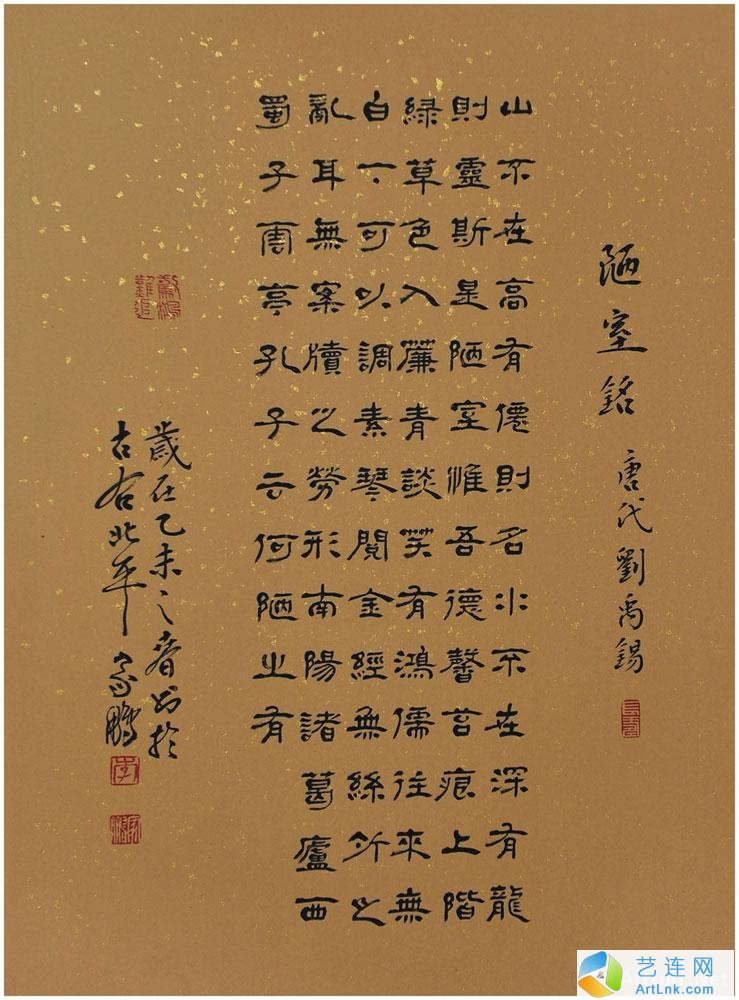 陋室銘 唐代劉禹錫
山不在高有僊則名水不在深有龍
則靈斯是陋室惟吾德馨苔痕上階
綠草色入簾青談笑有鴻儒往來無
白丁可以調素琴閱金經無絲竹之
亂耳無案牘之勞形南陽諸葛廬西
蜀子雲亭孔子云何陋之有
歲在乙未之春書於
古右北平家鵬
艺连网
ArtLnk.com